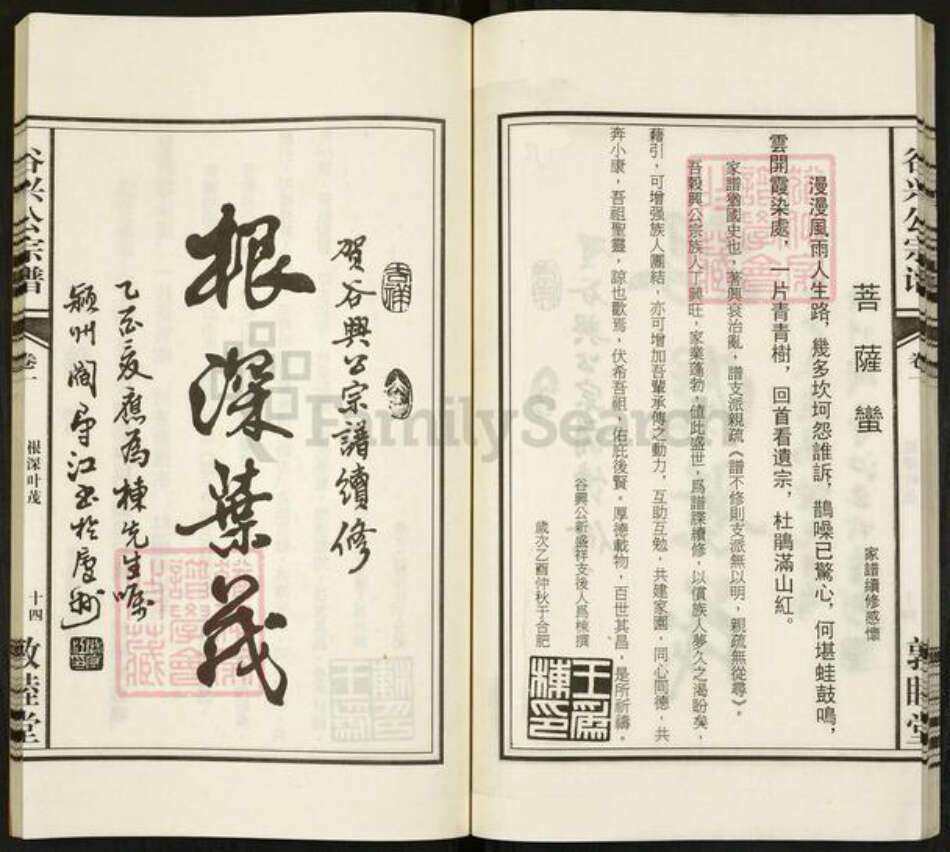 菩薩蠻
家譜續修感懷
漫漫風雨人生路，幾多坎坷怨誰訴，鵲噪已驚心，何堪蛙鼓鳴，
雲開霞染處，一片青青樹，回首看遺宗，杜鵑滿山紅。
家譜猶國史也，著興衰治亂，譜支派親疏《譜不修則支派無以明，親疏無從尋》。
吾穀興公宗族人丁興旺，家業蓬勃，值此盛世，爲譜牒續修，以償族人夢久之渴盼矣，
藉引，可增强族人團結，亦可增加吾輩承傳之動力，互助互勉，共建家園，同心同德，共
奔小康，吾祖聖靈，諒也歡焉，伏希吾祖，佑庇後賢。厚德載物，百世其昌，是所祈禱。
谷興公新盛祥支後人爲棟撰
歲次乙酉仲秋于合肥
王爲棟印
谷兴公宗谱
卷一
敦睦堂
賀谷興公宗譜續修
根深葉茂
乙酉夏應為棟先生囑
潁州閻導江書於廬州
谷兴公宗谱
卷一
根深叶茂
十四
敦睦堂
FamilySearch